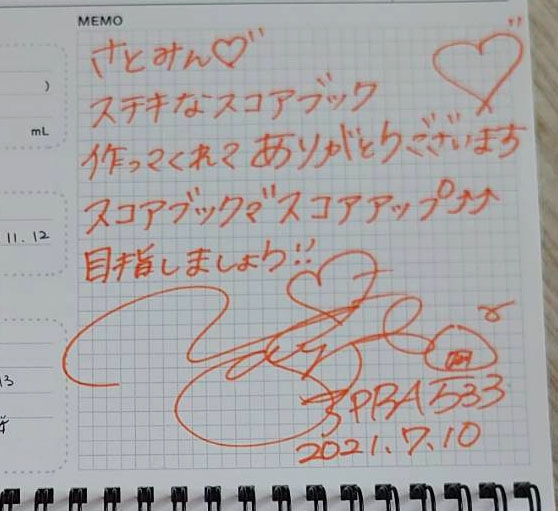 MEMO
さとみん♡
ステキなスコアブック
作ってくれて ありがとうございます
スコアブックでスコアアップ↗↗
目指しましょう!!
)
mL
11.12
13
JPBA533
2021.7.10